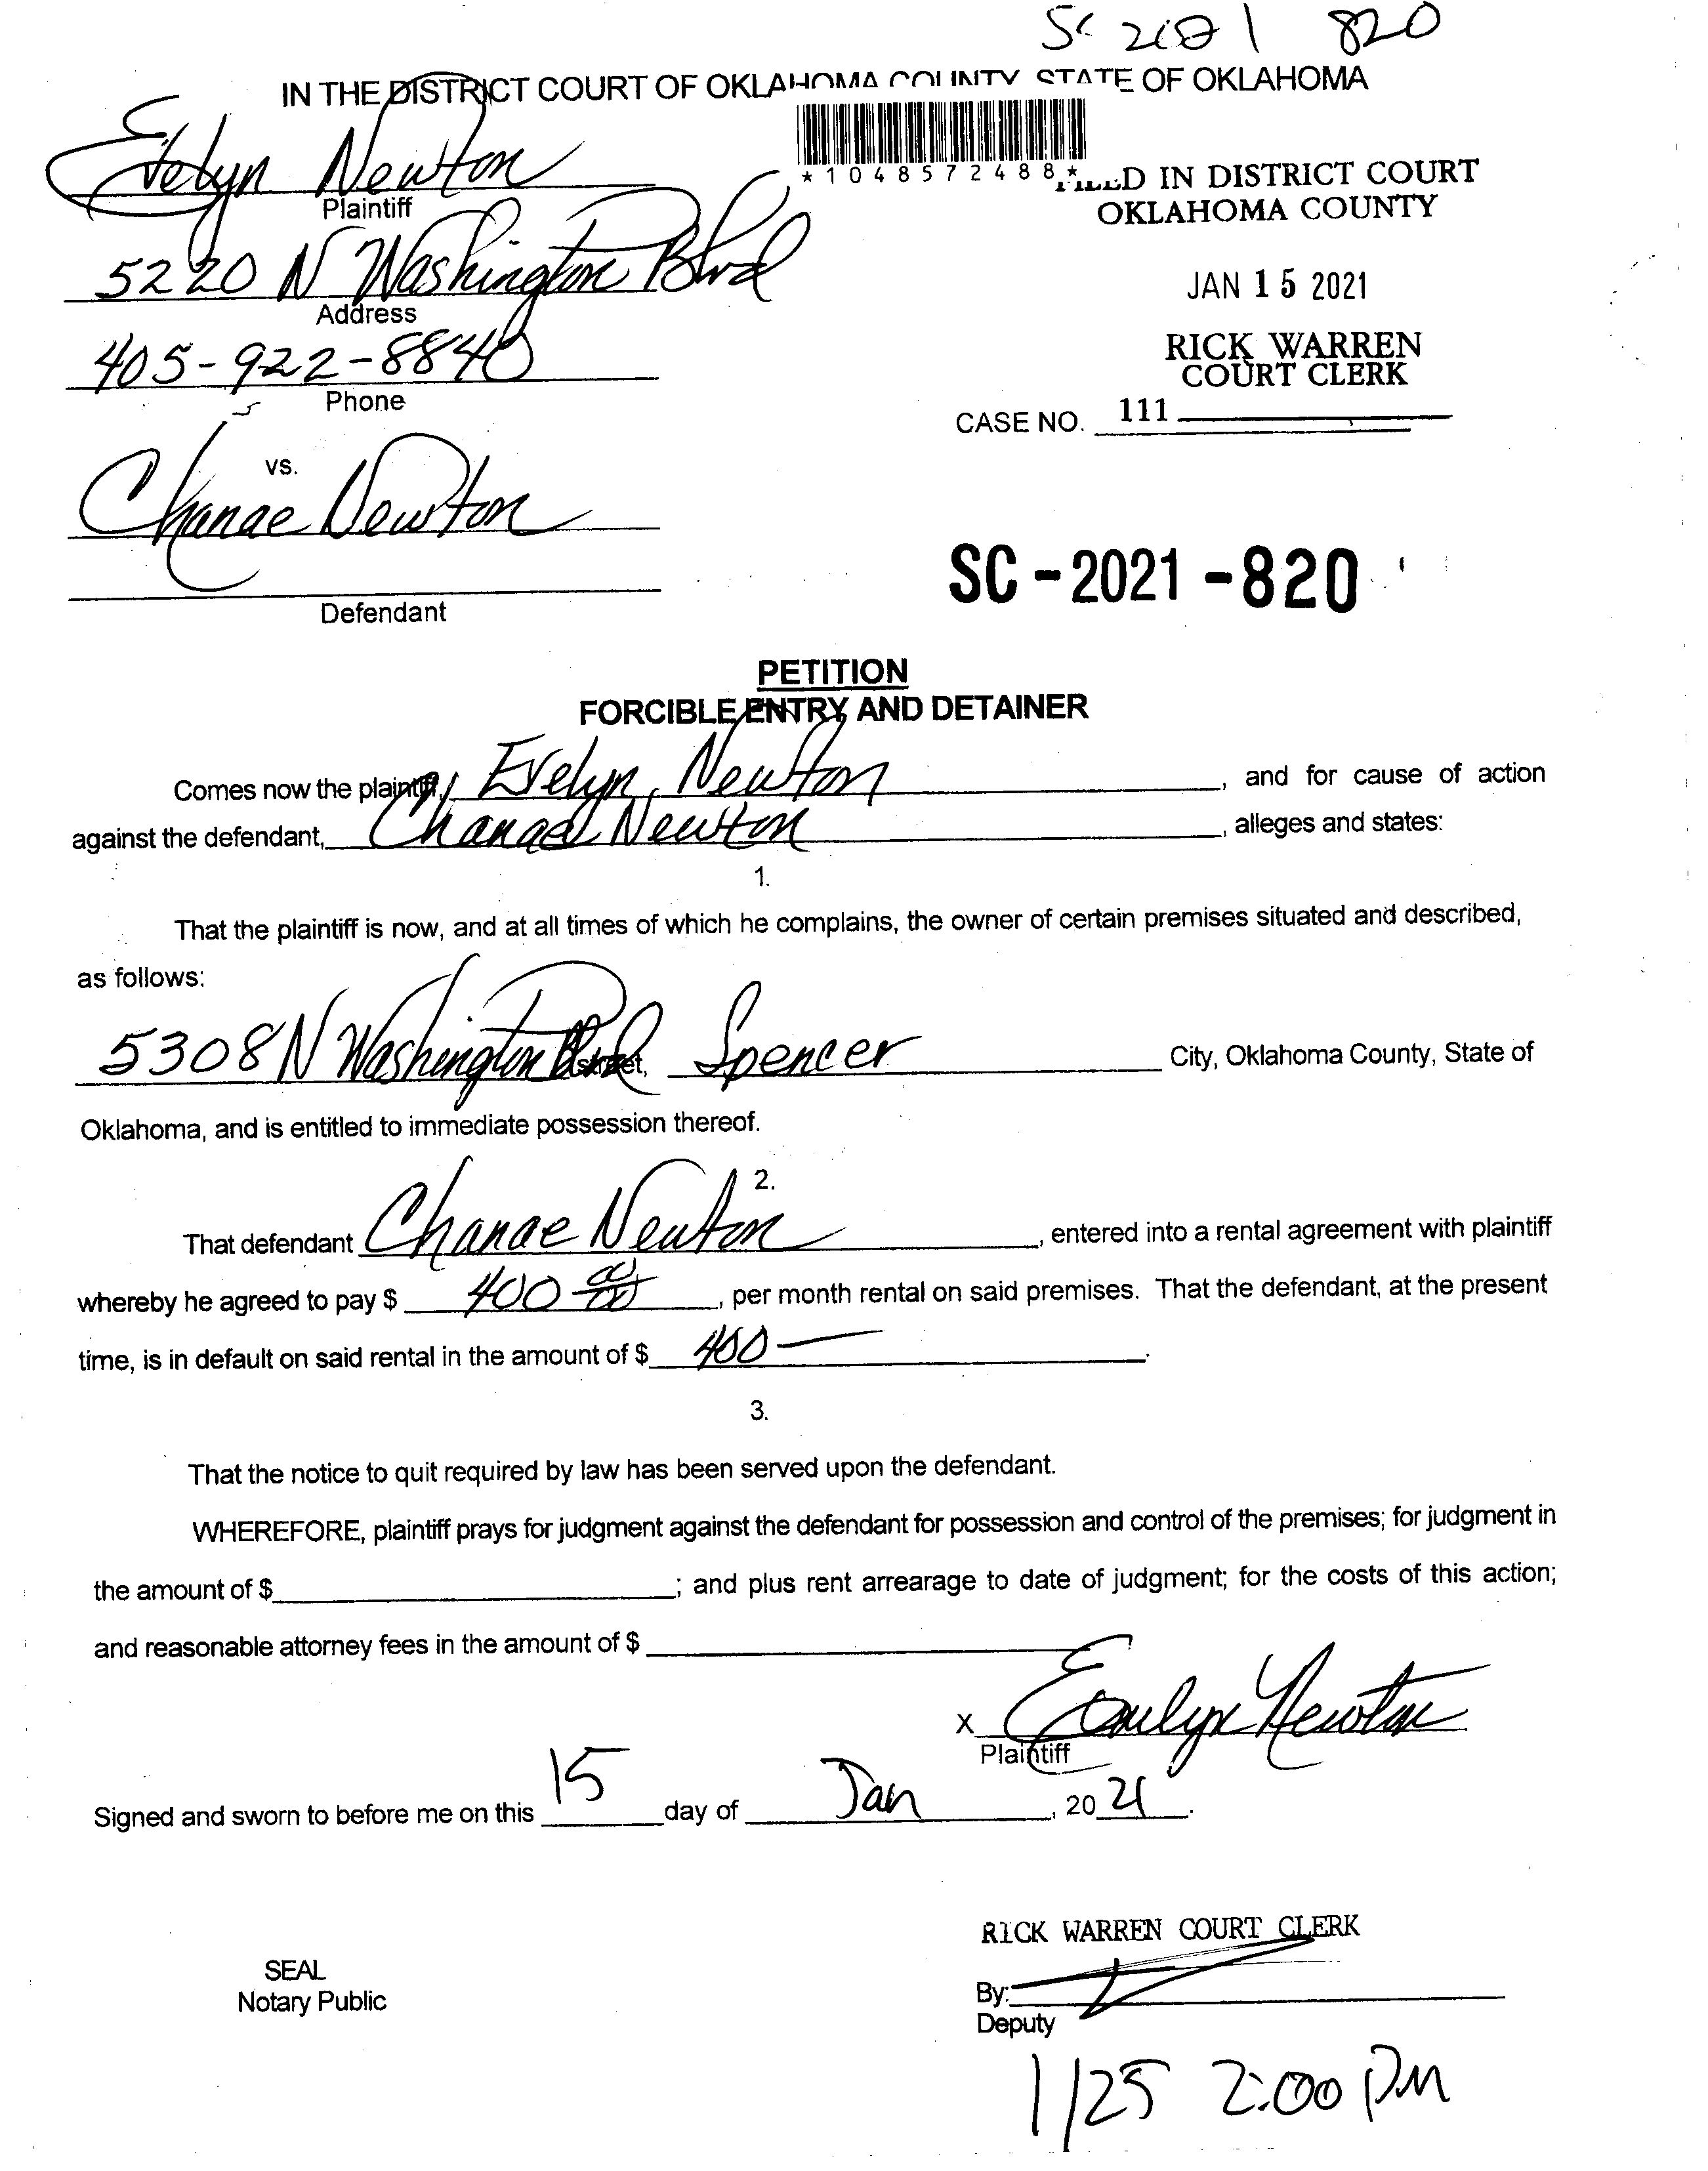 SC 2021 820
IN THE DISTRICT COURT OF OKLAHOMA COUNTY STATE OF OKLAHOMA
*1048572488*
Evelyn Newton
Plaintiff
FILED IN DISTRICT COURT
OKLAHOMA COUNTY
5220 N Washington Blvd
Address
JAN 15 2021
405-922-8840
Phone
RICK WARREN
COURT CLERK
CASE NO. 111
vs.
Chanae Newton
Defendant
SC-2021-820
PETITION
FORCIBLE ENTRY AND DETAINER
Comes now the plaintiff, Evelyn Newton, and for cause of action
against the defendant, Chanae Newton, alleges and states:
1.
That the plaintiff is now, and at all times of which he complains, the owner of certain premises situated and described,
as follows:
5308 N Washington Blvd street, Spencer City, Oklahoma County, State of
Oklahoma, and is entitled to immediate possession thereof.
2.
That defendant Chanae Newton, entered into a rental agreement with plaintiff
whereby he agreed to pay $ 400 00/00, per month rental on said premises. That the defendant, at the present
time, is in default on said rental in the amount of $ 400 —.
3.
That the notice to quit required by law has been served upon the defendant.
WHEREFORE, plaintiff prays for judgment against the defendant for possession and control of the premises; for judgment in
the amount of $ ; and plus rent arrearage to date of judgment; for the costs of this action;
and reasonable attorney fees in the amount of $
X Evelyn Newton
Plaintiff
Signed and sworn to before me on this 15 day of Jan, 2021.
RICK WARREN COURT CLERK
SEAL
Notary Public
By:
Deputy
1/25 2:00 PM